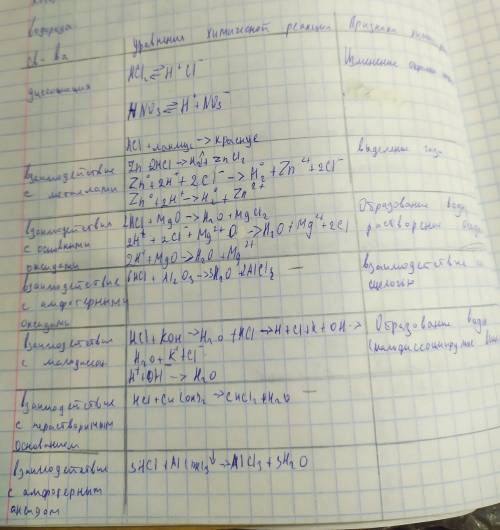 водорода
Св-ва
уравнения химической реакции
Признаки
HCl ⇄ H⁺Cl⁻
Изменение окраски
диссоциация
HNO₃ ⇄ H⁺ + NO₃⁻
HCl + лакмус -> красный
взаимодействие
с металлами
Zn + 2HCl -> H₂↑ + ZnCl₂
Zn⁰ + 2H⁺ + 2Cl⁻ -> H₂⁰ + Zn²⁺ + 2Cl⁻
Zn⁰ + 2H⁺ -> H₂⁰ + Zn²⁺
выделение газа
взаимодействие
с основными
оксидами
2HCl + MgO -> H₂O + MgCl₂
2H⁺ + 2Cl⁻ + Mg²⁺O -> H₂O + Mg²⁺ + 2Cl
2H⁺ + MgO -> H₂O + Mg²⁺
Образование воды
растворение
взаимодействие
с амфотерными
оксидами
6HCl + Al₂O₃ -> 3H₂O + 2AlCl₃ —
взаимодействие со
щелочью
взаимодействие
с
HCl + KOH -> H₂O + KCl -> H + Cl + K + OH ->
H₂O + K⁺ + Cl⁻
H⁺ + OH⁻ -> H₂O
Образование воды
взаимодействие
с нерастворимым
основанием
HCl + Cu(OH)₂ -> CuCl₂ + H₂O —
взаимодействие
с амфотерным
3HCl + Al(OH)₃↓ -> AlCl₃ + 3H₂O